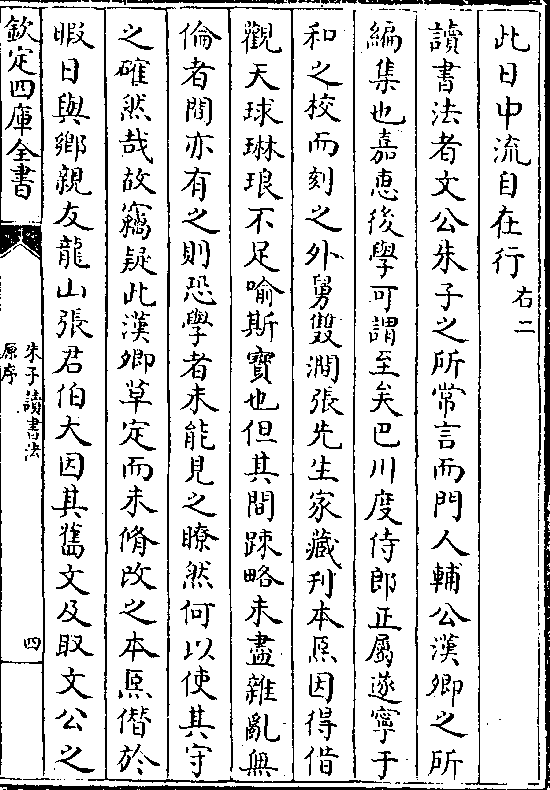 此日中流自在行右二
讀書法者文公朱子之所常言而門人輔公漢卿之所
編集也嘉惠後學可謂至矣巴川度侍郎正屬遂寧于
和之校而刻之外舅雙澗張先生家藏刋本𤋮因得借
觀天球琳琅不足喻斯寶也但其間踈略未盡雜亂無
倫者間亦有之則恐學者未能見之瞭然何以使其守
之確然哉故竊疑此漢卿草定而未脩改之本𤋮僭於
暇日與鄉親友龍山張君伯大因其舊文及取文公之
欽定四庫全書
朱子讀書法
原序
四